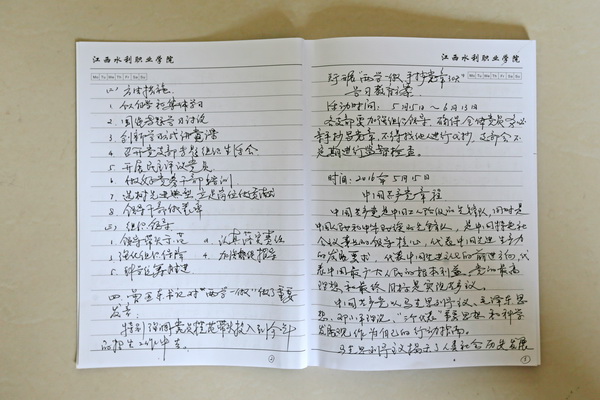 江西水利职业学院
Mo Tu We Th Fr Sa Su
(二) 方法措施
1. 个人自学和集体学习
2. 围绕专题学习讨论
3. 创新方式讲党课
4. 召开党支部专题组织生活会
5. 开展民主评议党员
6. 做好党务干部培训
7. 选树先进典型,立足岗位作贡献
8. 领导干部做表率
(三) 组织领导
1. 领导带头示范 4. 认真落实责任
2. 强化组织保障 4. 加强督促指导
3. 
四. 书记对"两学一做"做了重要
发言:
特别强调党员模范带头投入到今年
的招生工作中去。
江西水利职业学院
Mo Tu We Th Fr Sa Su
开展"两学一做,手抄党章30天"
学习教育活动
活动时间:5月15日~6月13日
各支部要加强组织领导,确保全体党员务必
亲手抄写党章,不得找他人进行代抄,支部会不
定期进行监督检查。
时间:2016年5月15日
中国共产党章程
中国共产党是中国工人阶级的先锋队,同时是
中国人民和中华民族的先锋队,是中国特色社
会主义事业的领导核心,代表中国先进生产力
的发展要求,代表中国先进文化的前进方向,代
表中国最广大人民的根本利益。党的最高
理想和最终目标是实现共产主义。
中国共产党以马克思列宁主义、毛泽东思
想、邓小平理论、"三个代表"重要思想和科学
发展观作为自己的行动指南。
马克思列宁主义揭示了人类社会历史发展